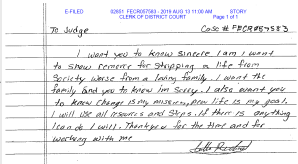 E-FILED 02651 FECR057583 - 2019 AUG 13 11:00 AM STORY
CLERK OF DISTRICT COURT Page 1 of 1
To Judge Case # FECR057583
I want you to know sincere I am I want
to show remorse for stripping a life from
Society worse from a loving family. I want the
family and you to know im Sorry. I also want you
to know change is my mission, new life is my goal.
I will use all resources and steps. If there is anything
I can do I will. Thank you for the time and for
working with me